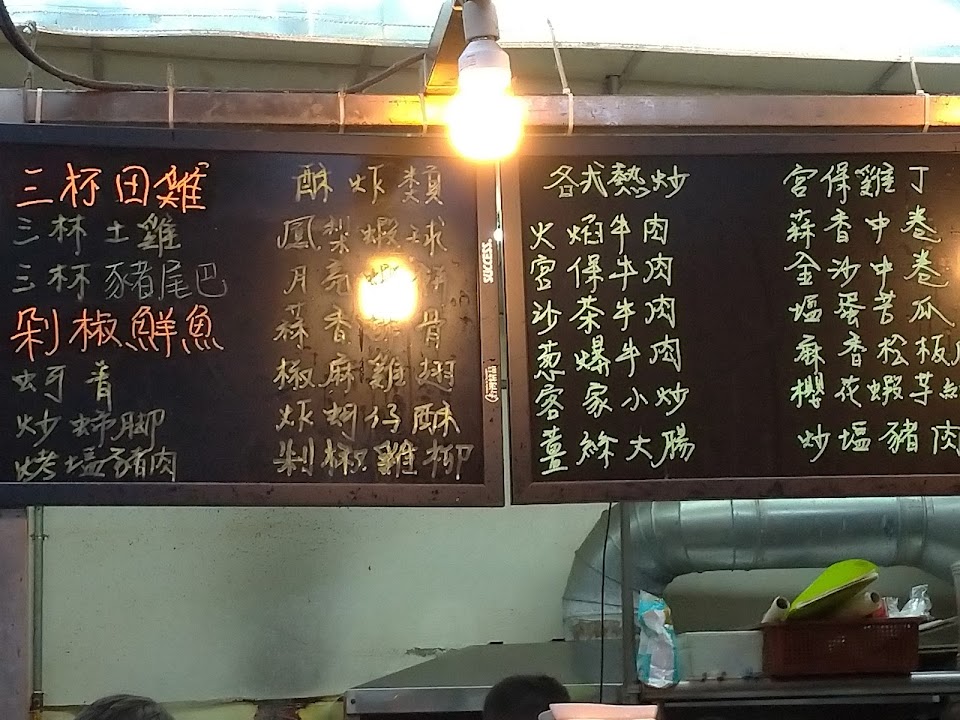 三杯田雞
三杯土雞
三杯豬尾巴
剁椒鮮魚
蚵青
炒蟳腳
烤塩豬肉
酥炸類
鳳梨蝦球
月亮蝦餅
蒜香排骨
椒麻雞翅
炸蚵仔酥
剁椒雞柳
SUCCESS
各式熱炒
火焰牛肉
宮保牛肉
沙茶牛肉
葱爆牛肉
客家小炒
薑絲大腸
宮保雞丁
蒜香中卷
金沙中卷
塩蛋苦瓜
麻香松板
櫻花蝦芋
炒塩豬肉